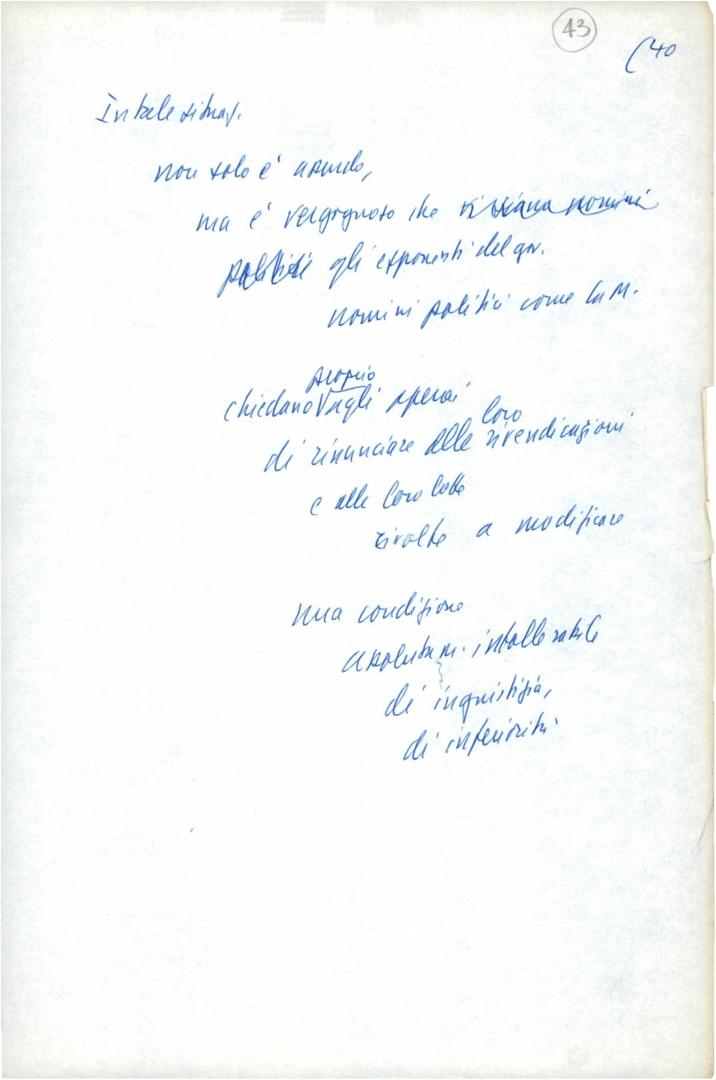 43
(40
In tale situaz.
non solo è assurdo,
ma è vergognoso che vi siano uomini
politici gli esponenti del gov.
uomini politici come La M.
proprio
chiedano agli operai
loro
di rinunciare alle rivendicazioni
e alle loro lotte
rivolte a modificare
una condizione
assolutam. intollerabile
di ingiustizia,
di inferiorità